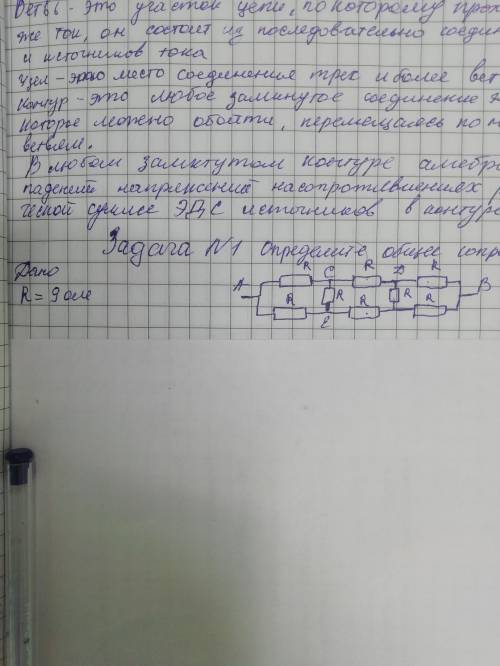 Ветвь - это участок цепи, по которому
же ток, он состоит из последовательно
и источников тока
Узел - это место соединение трех и более
Контур - это любое замкнутое соединение
которое можно обойти, перемещаясь по
ветвям.
В любом замкнутом контуре
падений напряжений на сопротивлениях
ческой сумме ЭДС источников в контуре
Задача N1 Определите общее
Дано
R = 9 оме
R C R D R
A R R B
R R R
E